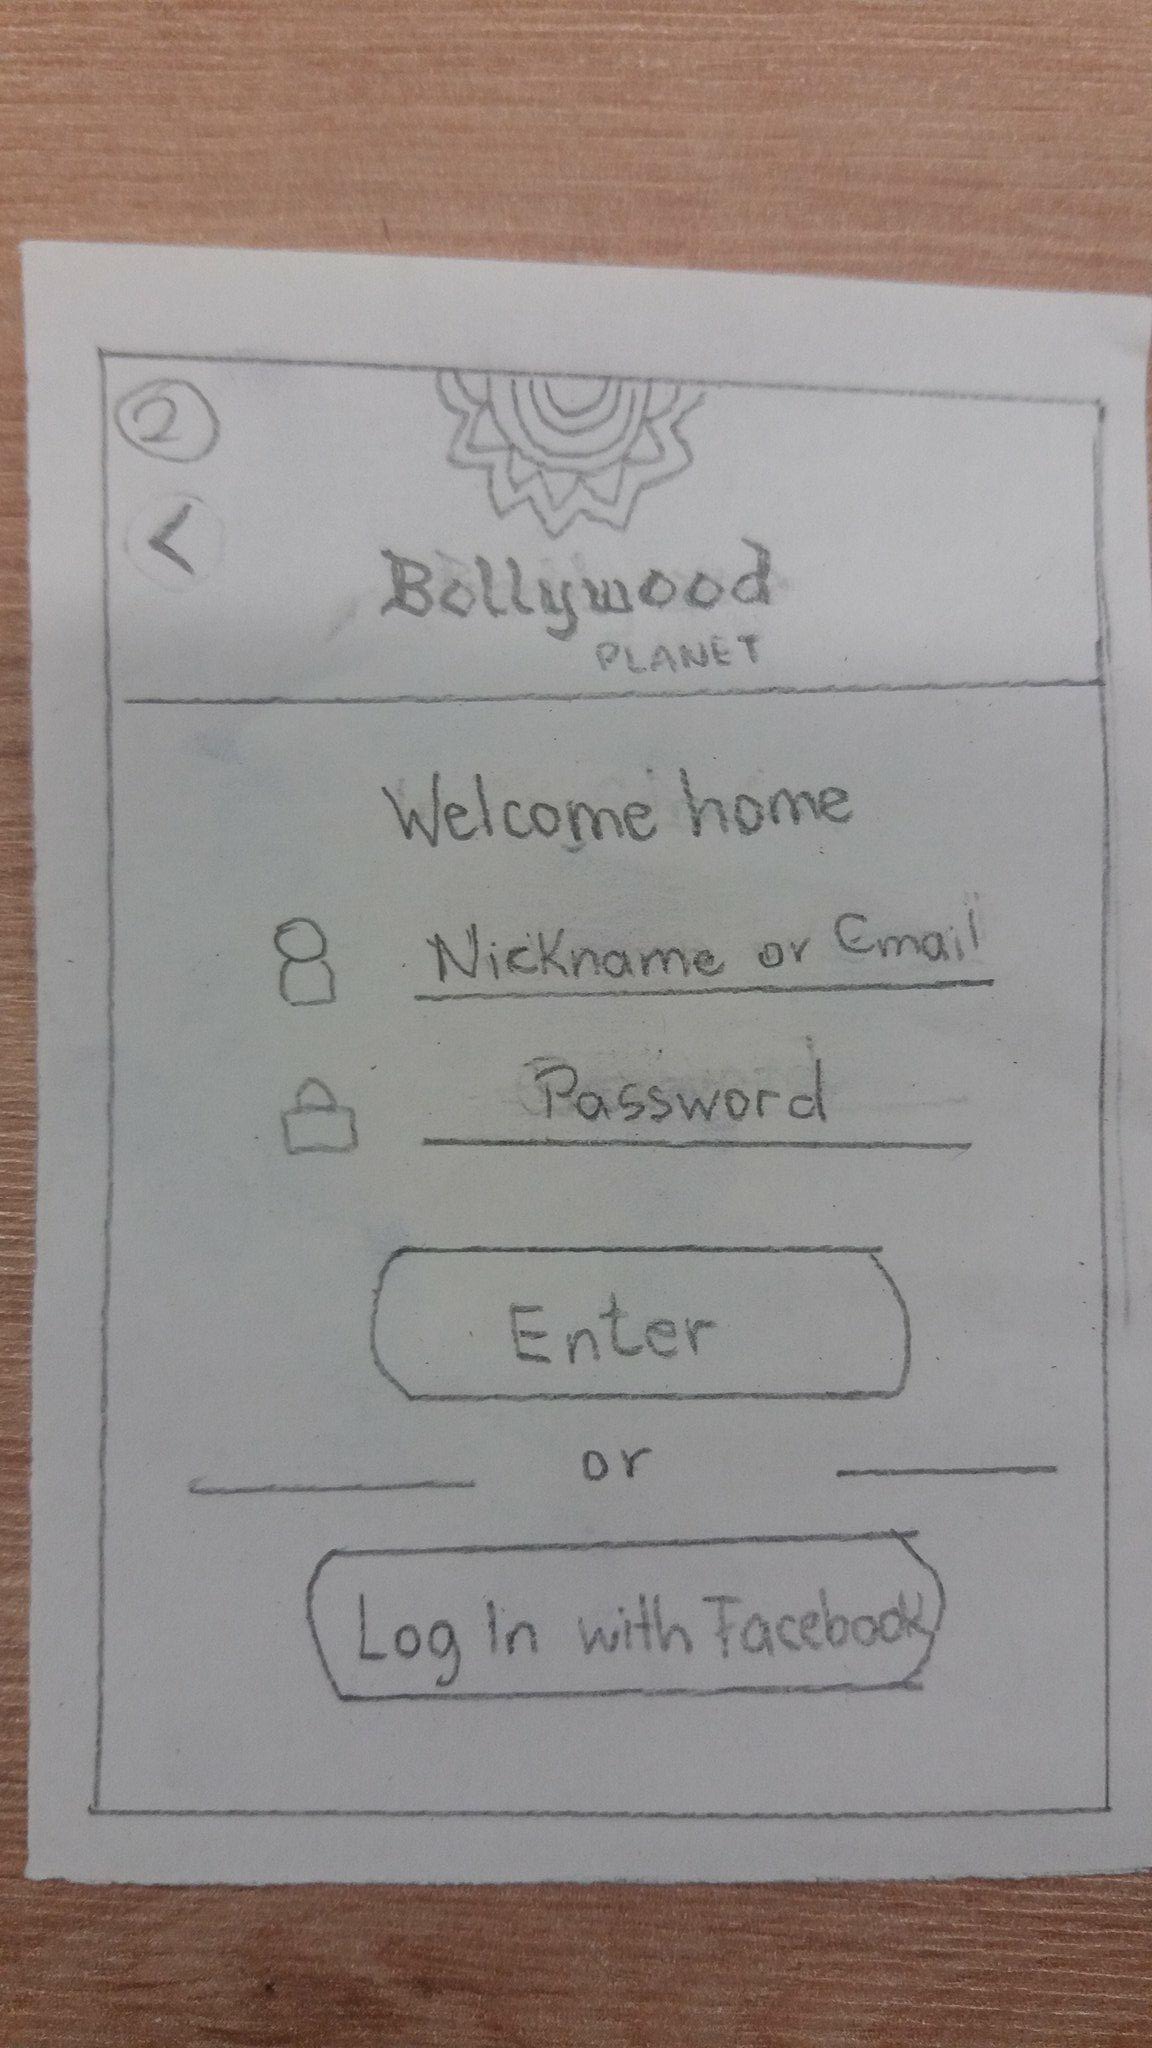 2
<
Bollywood
PLANET
Welcome home
Nickname or Email
Password
Enter
or
Log In with Facebook